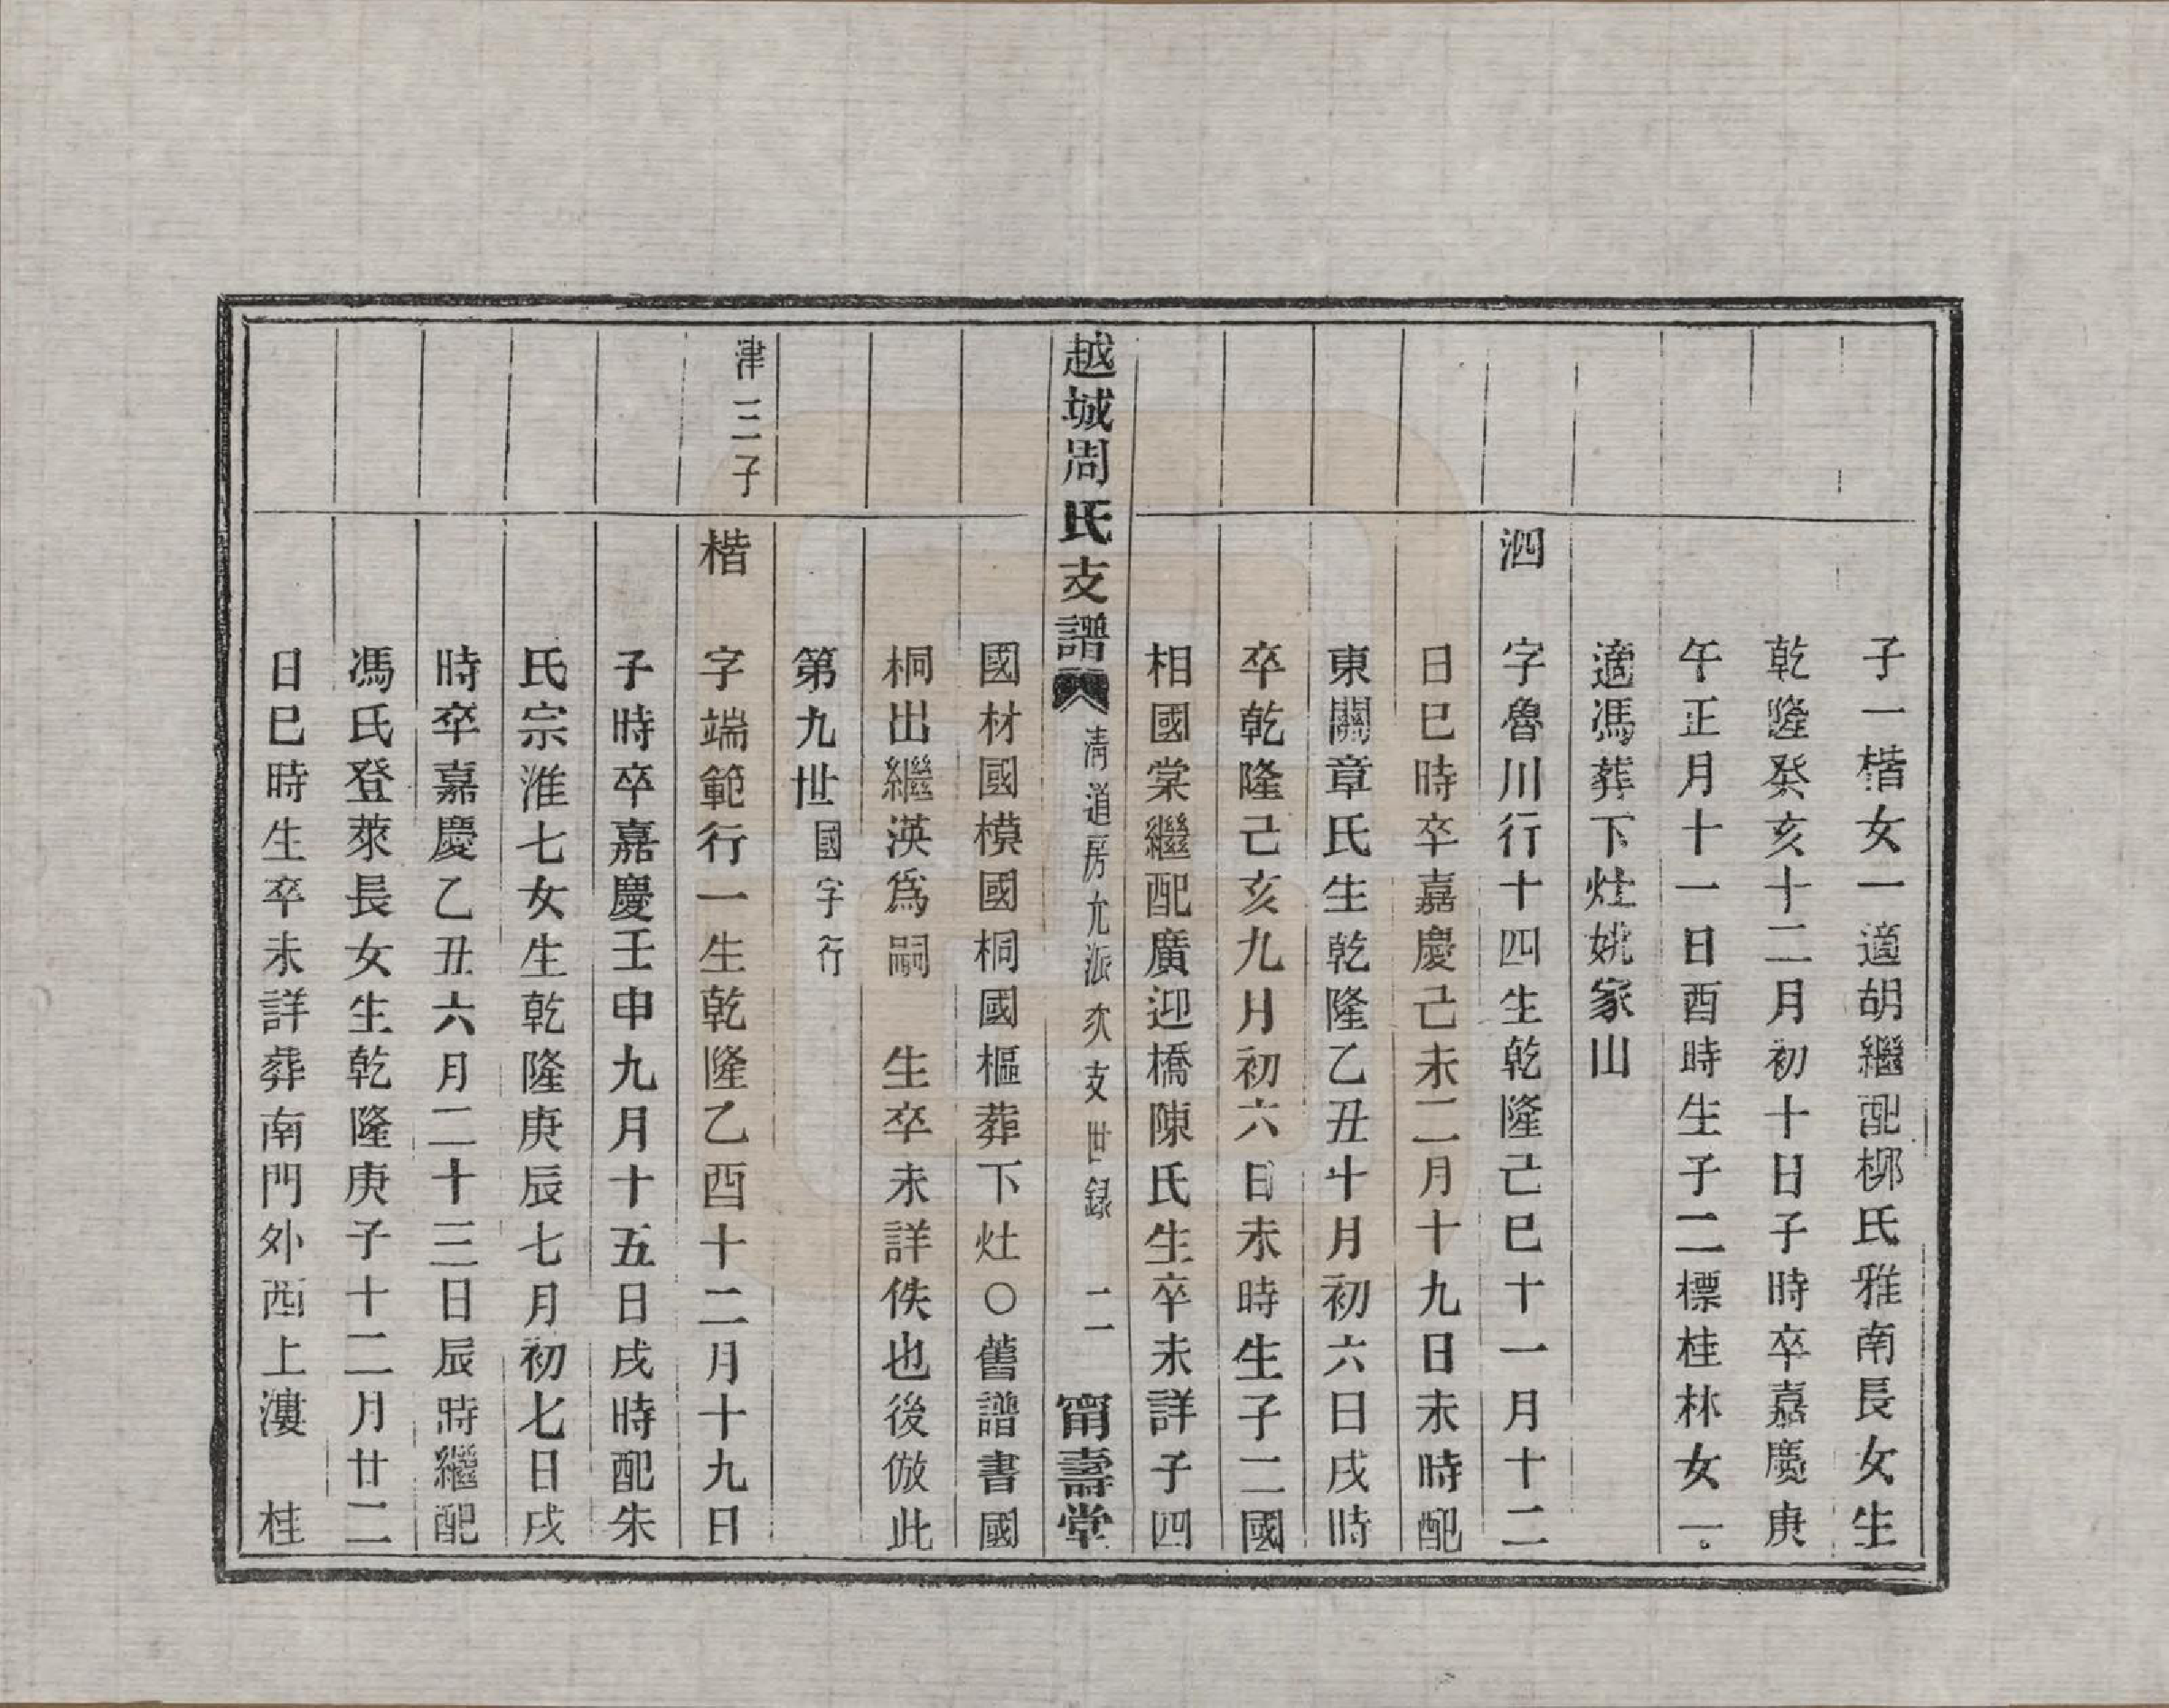 子一楷女一適胡繼配柳氏雅南長女生
乾隆癸亥十二月初十日子時卒嘉慶庚
午正月十一日酉時生子二標桂林女一
適馮葬下灶姚家山
泗 字魯川行十四生乾隆己巳十一月十二
日巳時卒嘉慶己未二月十九日未時配
東關章氏生乾隆乙丑十月初六日戌時
卒乾隆己亥九月初六日未時生子二國
相國棠繼配廣迎橋陳氏生卒未詳子四
越城周氏支譜 清道房允派次支世錄 二一 甯壽堂
國材國模國桐國樞葬下灶○舊譜書國
桐出繼渶爲嗣 生卒未詳佚也後倣此
第九世國字行
津三子
楷 字端範行一生乾隆乙酉十二月十九日
子時卒嘉慶壬申九月十五日戌時配朱
氏宗淮七女生乾隆庚辰七月初七日戌
時卒嘉慶乙丑六月二十三日辰時繼配
馮氏登萊長女生乾隆庚子十二月廿二
日巳時生卒未詳葬南門外西上漊 桂